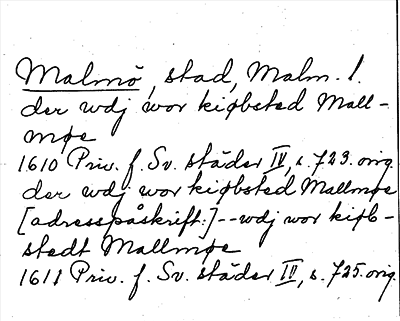 Malmö, stad, Malm. l.
der wdj wor kiøbsted Mall-
møe
1610 Priv. f. Sv. städer IV, s. 723. orig.
der wdj wor kiøbsted Mallmøe
[adresspåskrift:]--wdj wor kiøb-
stedt Mallmøe
1611 Priv. f. Sv. städer IV, s. 725. orig.